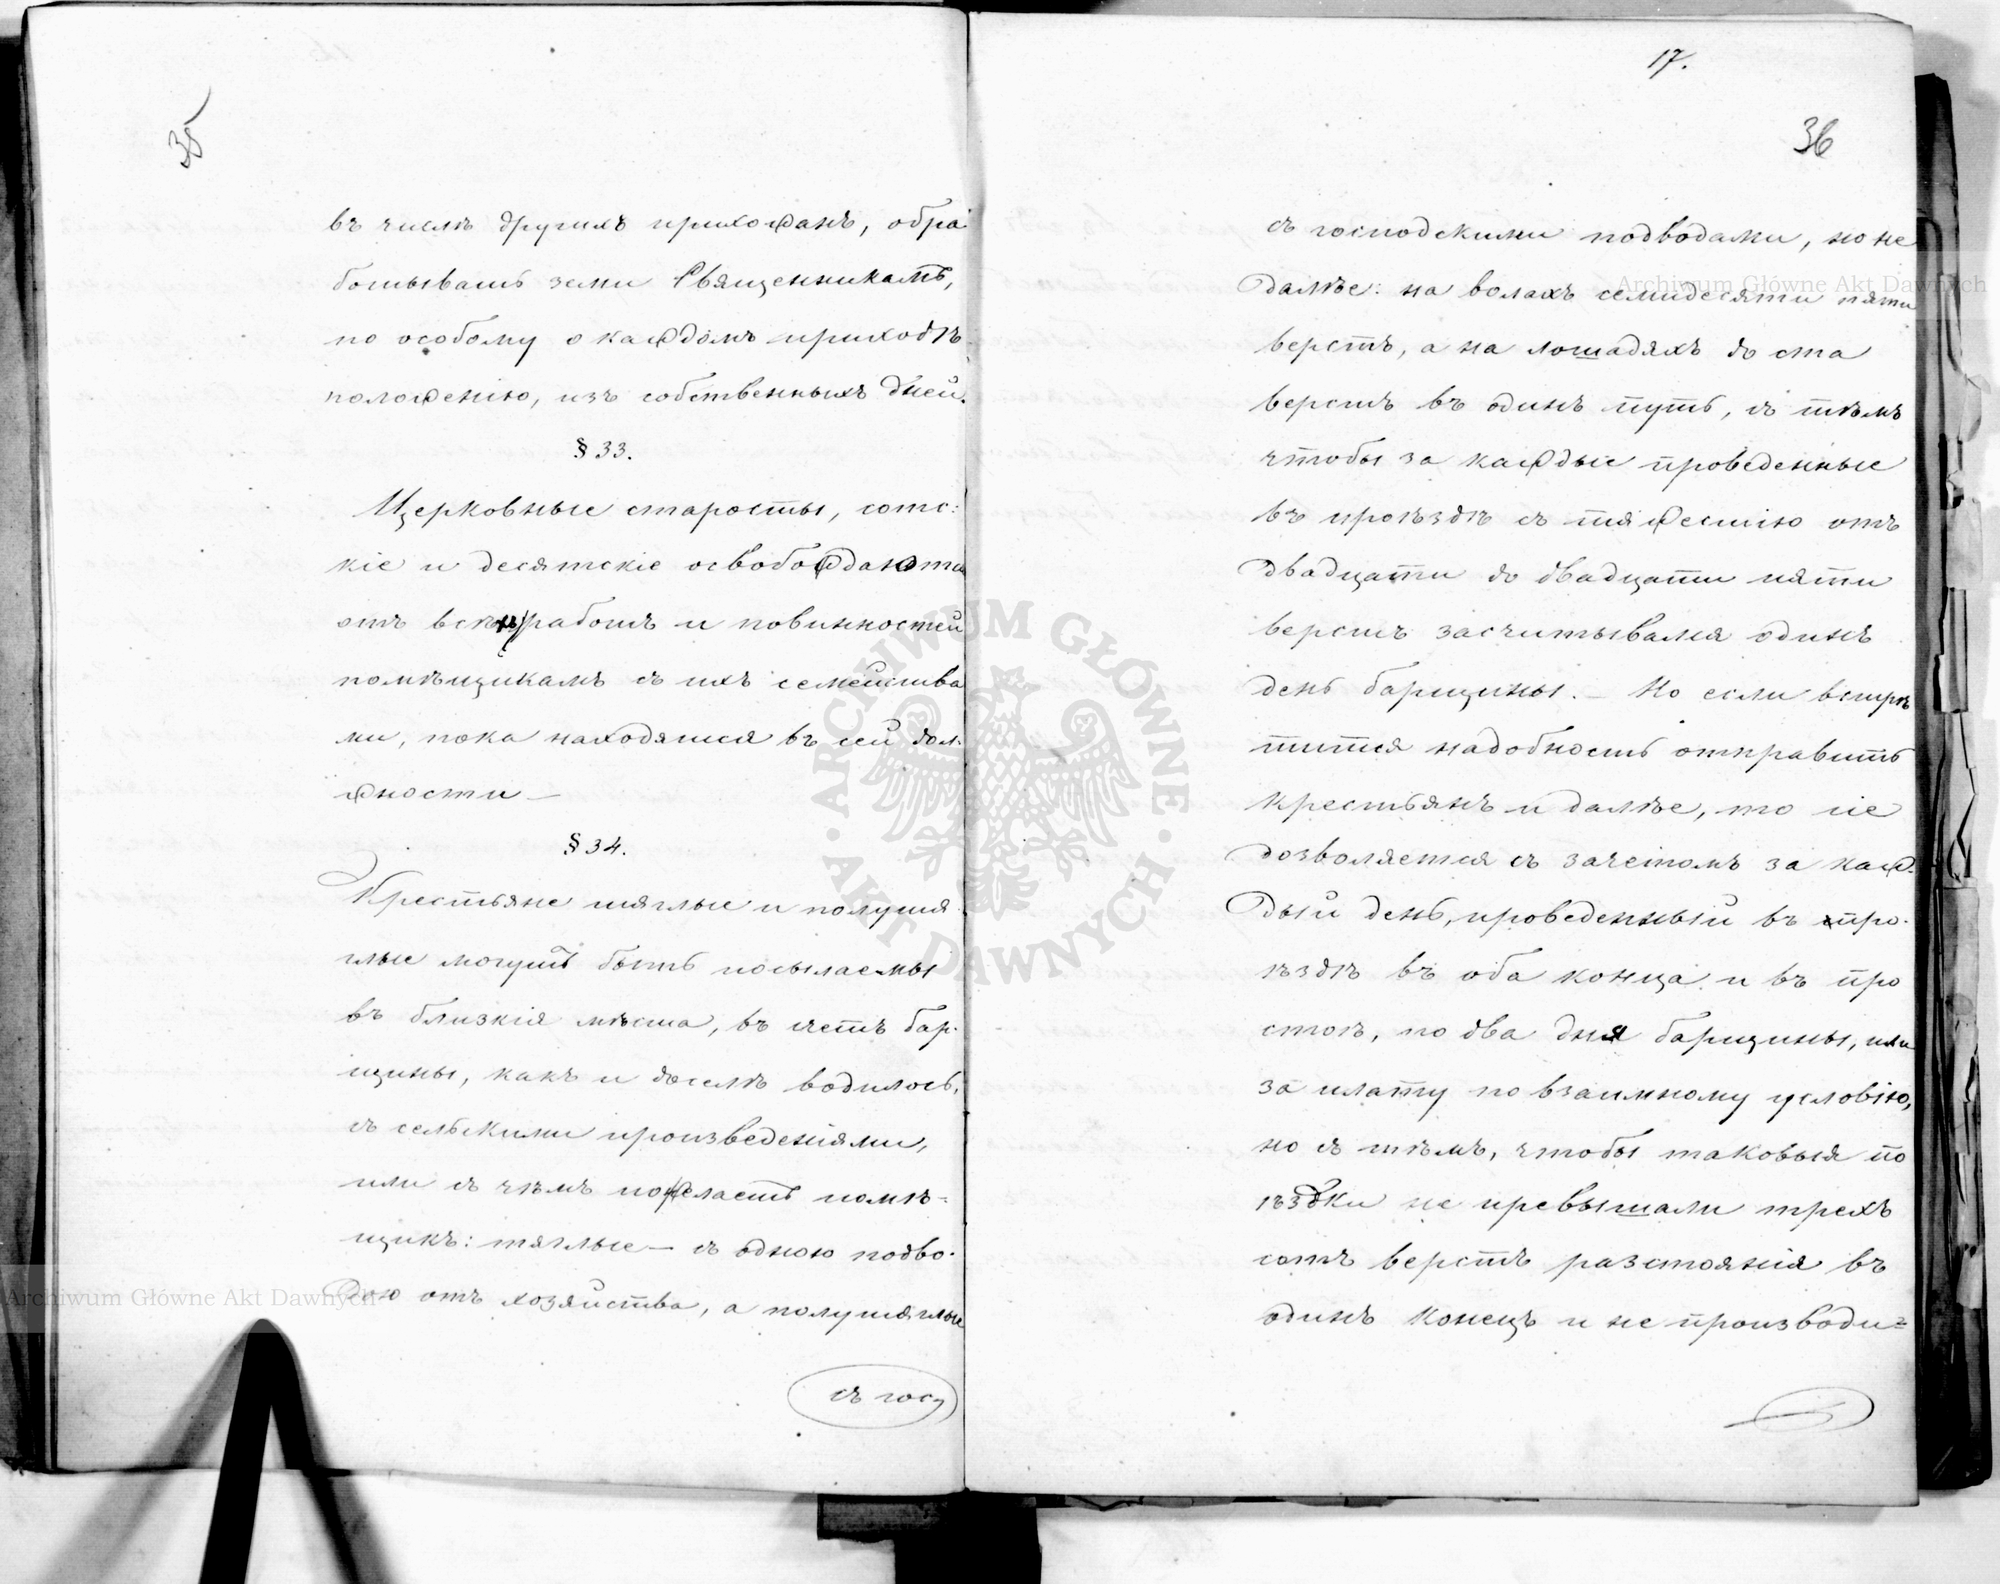 35
въ числѣ другихъ прихожанъ, обра
ботывать земли Священникамъ,
по особому о каждомъ приходѣ
положенію, изъ собственныхъ дней.
§ 33.
Церковные старосты, сотс:
кіе и десятскіе освобождаются
отъ всѣхъ работъ и повинностей
помѣщикамъ съ ихъ семейства
ми, пока находятся въ сей дол-
жности —
§ 34.
Крестьяне тяглые и полутя
глые могутъ быть посылаемы
въ близкія мѣста, въ счетъ бар-
щины, какъ и доселѣ водилось,
съ сельскими произведеніями,
или съ чѣмъ пожелаетъ помѣ-
щикъ: тяглые — съ одною подво-
дою отъ хозяйства, а полутяглые
съ госп
17.
36
съ господскими подводами, но не
далѣе: на волахъ семидесяти пяти
верстъ, а на лошадяхъ до ста
верстъ въ одинъ путь, съ тѣмъ
чтобы за каждые проведенные
въ проѣздѣ съ тяжестію отъ
двадцати до двадцати пяти
верстъ засчитывался одинъ
день барщины. — Но если встрѣ
тится надобность отправить
крестьянъ и далѣе, то сіе
дозволяется съ зачетомъ за каж-
дый день, проведенный въ про-
ѣздѣ въ оба конца и въ про
стоѣ, по два дня барщины, или
за плату по взаимному условію,
но съ тѣмъ, чтобы таковыя по
ѣздки не превышали трехъ
сотъ верстъ разстоянія въ
одинъ конецъ и не производи=
Archiwum Główne Akt Dawnych
Archiwum Główne Akt Dawnych
ARCHIWUM GŁÓWNE · AKT DAWNYCH ·